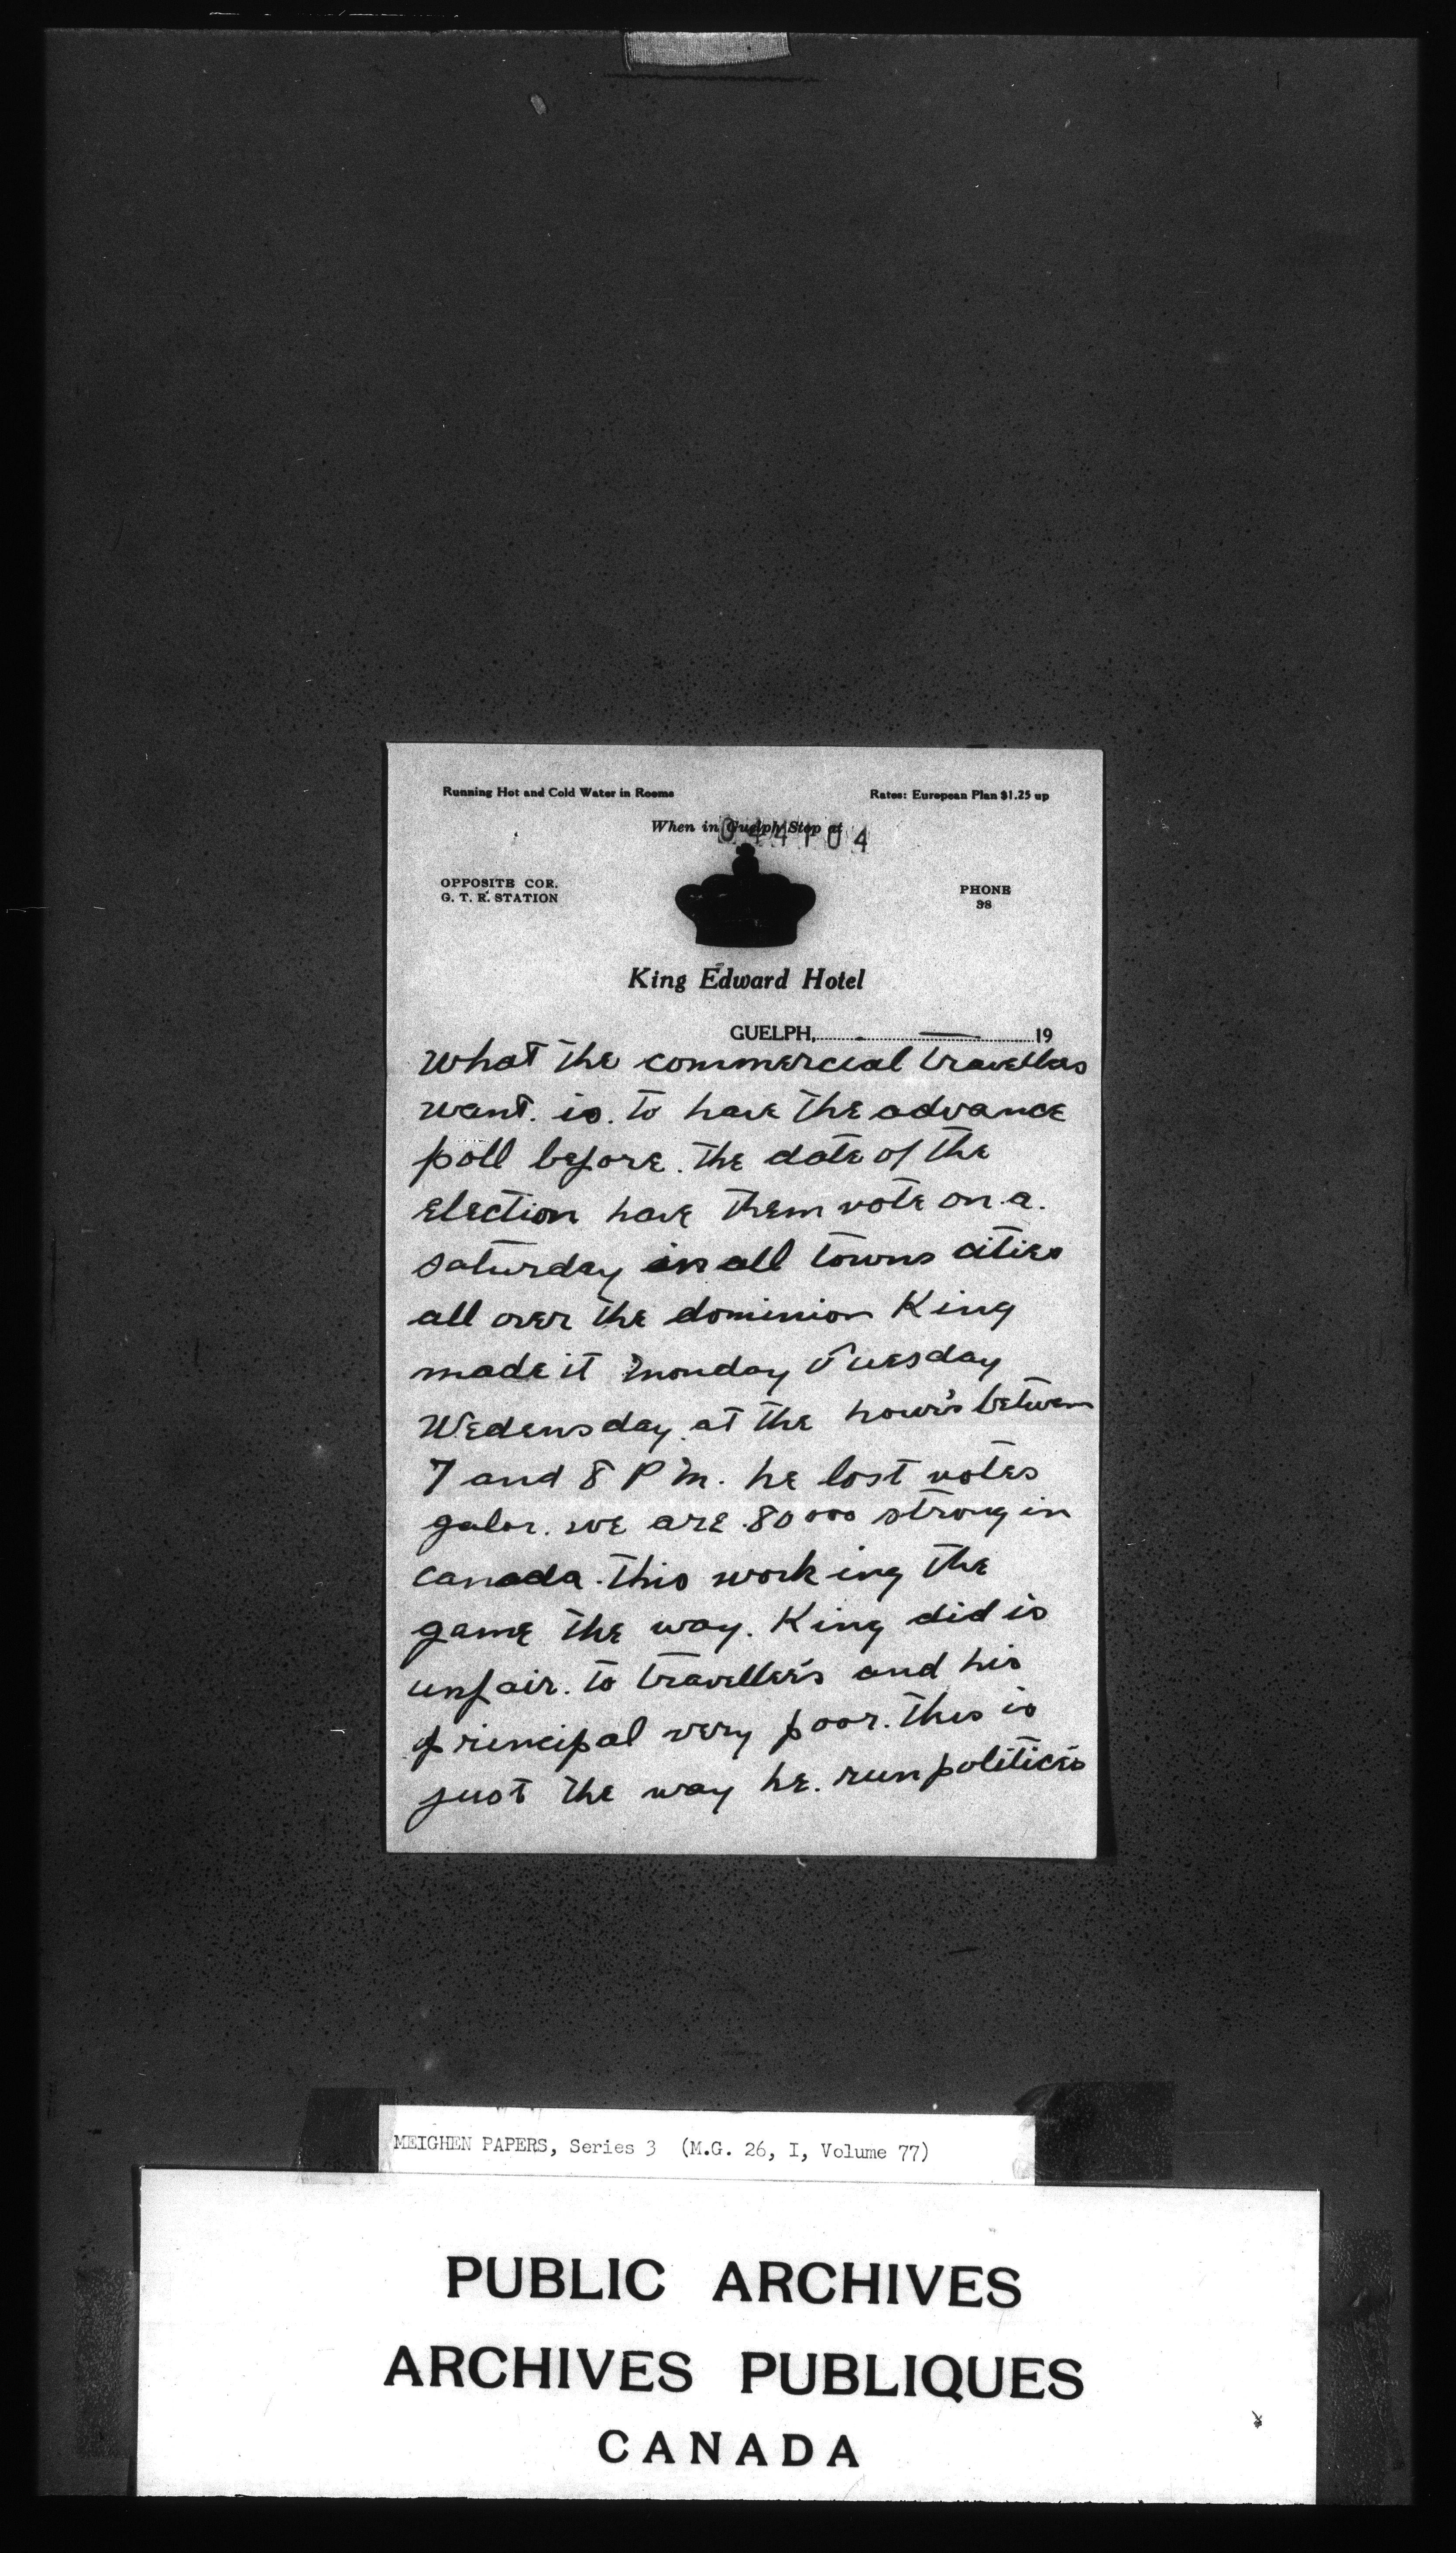 Running Hot and Cold Water in Rooms
Rates: European Plan $1.25 up
When in Guelph Stop at
044104
OPPOSITE COR.
G. T. R. STATION
PHONE
98
King Edward Hotel
GUELPH, 19
What the commercial travellers
want. is. to have the advance
poll before. the date of the
Election have them vote on a.
saturday in all towns cities
all over the dominion King
made it monday Tuesday
Wedensday. at the hour's between
7 and 8 P m. he lost votes
galor. we are 80000 strong in
canada. this working the
game the way. King did is
unfair. to traveller's and his
principal very poor. this is
just the way he. run politic's
MEIGHEN PAPERS, Series 3 (M.G. 26, I, Volume 77)
PUBLIC ARCHIVES
ARCHIVES PUBLIQUES
CANADA